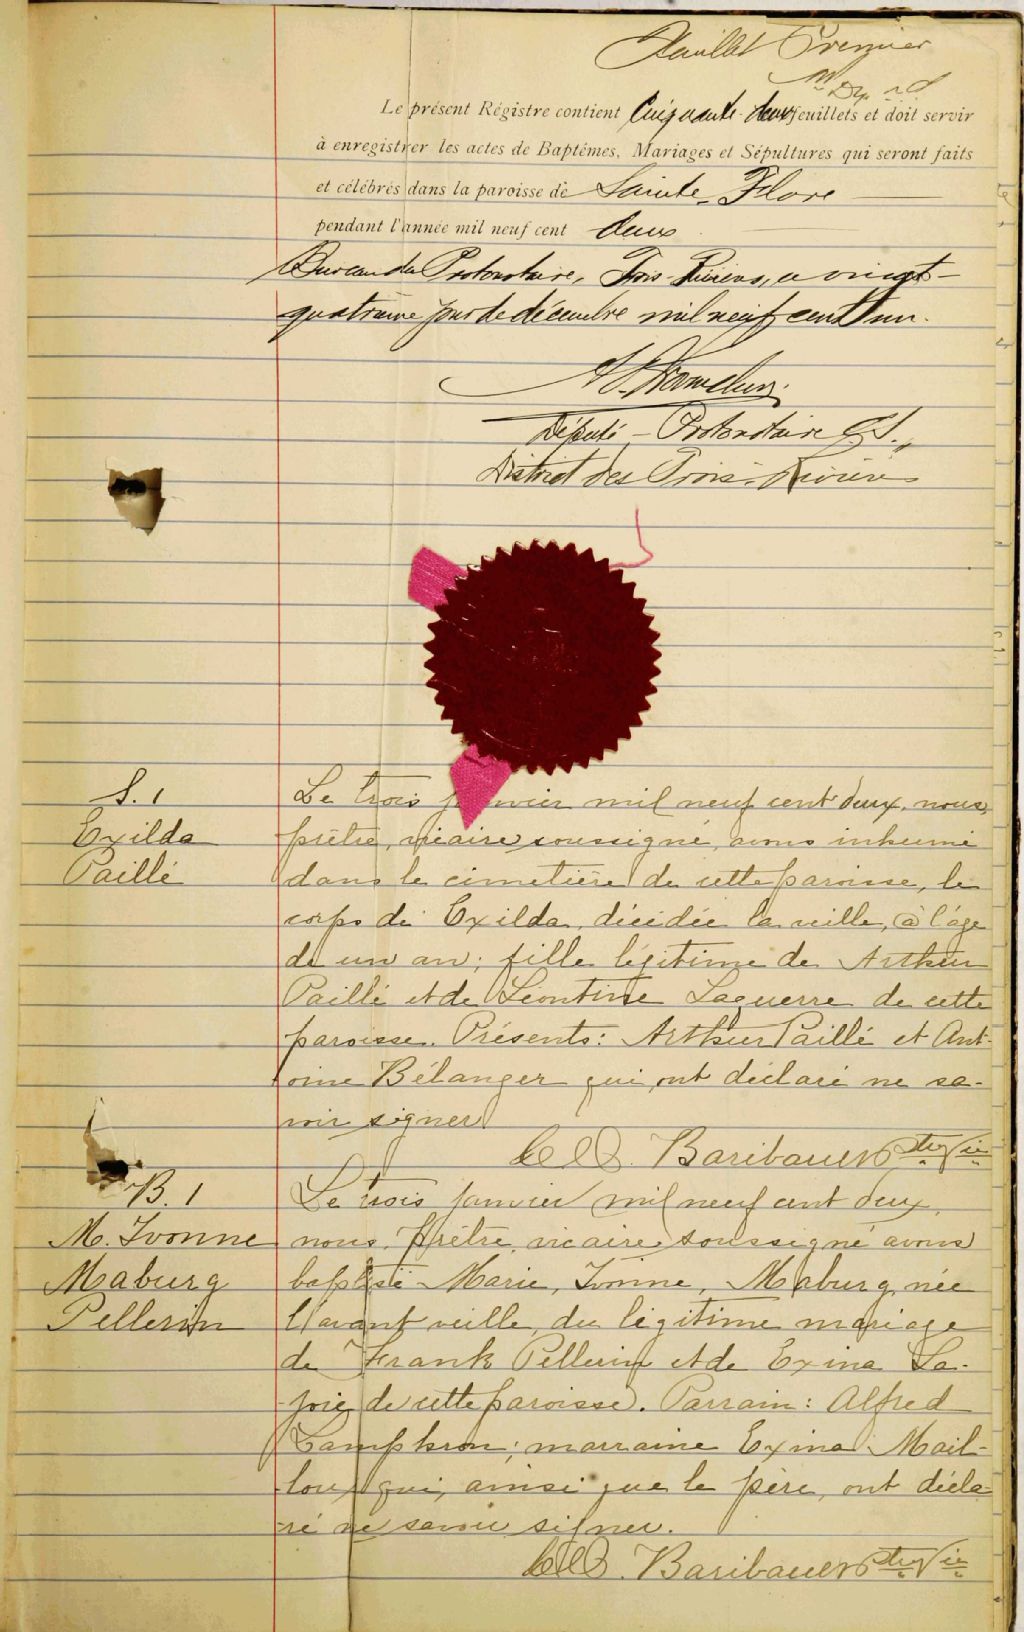 Feuillet Premier
Le présent Régistre contient Cinquante deux feuillets et doit servir
à enregistrer les actes de Baptêmes, Mariages et Sépultures qui seront faits
et célébrés dans la paroisse de Sainte-Flore
pendant l'année mil neuf cent deux
Bureau du Protonotaire, Trois-Rivières, ce vingt-
quatrième jour de décembre mil neuf cent un.
Député-Protonotaire C.S.,
District des Trois-Rivières
S. 1
Exilda
Paillé
Le trois janvier mil neuf cent deux, nous,
prêtre, vicaire soussigné, avons inhumé
dans le cimetière de cette paroisse, le
corps de Exilda, décédée la veille, à l'âge
de un an; fille légitime de Arthur
Paillé et de Léontine Laguerre de cette
paroisse. Présents: Arthur Paillé et Ant-
oine Bélanger qui ont déclaré ne sa-
voir signer
Baribeau Ptre Vic
B. 1
M. Ivonne
Maburg
Pellerin
Le trois janvier mil neuf cent deux,
nous, prêtre, vicaire, soussigné avons
baptisé Marie, Ivonne, Maburg, née
l'avant veille, du légitime mariage
de Frank Pellerin et de Exina La-
joie de cette paroisse. Parrain: Alfred
Lampkron; marraine Exina Mail-
loux qui, ainsi que le père, ont décla-
ré ne savoir signer.
Baribeau Ptre Vic